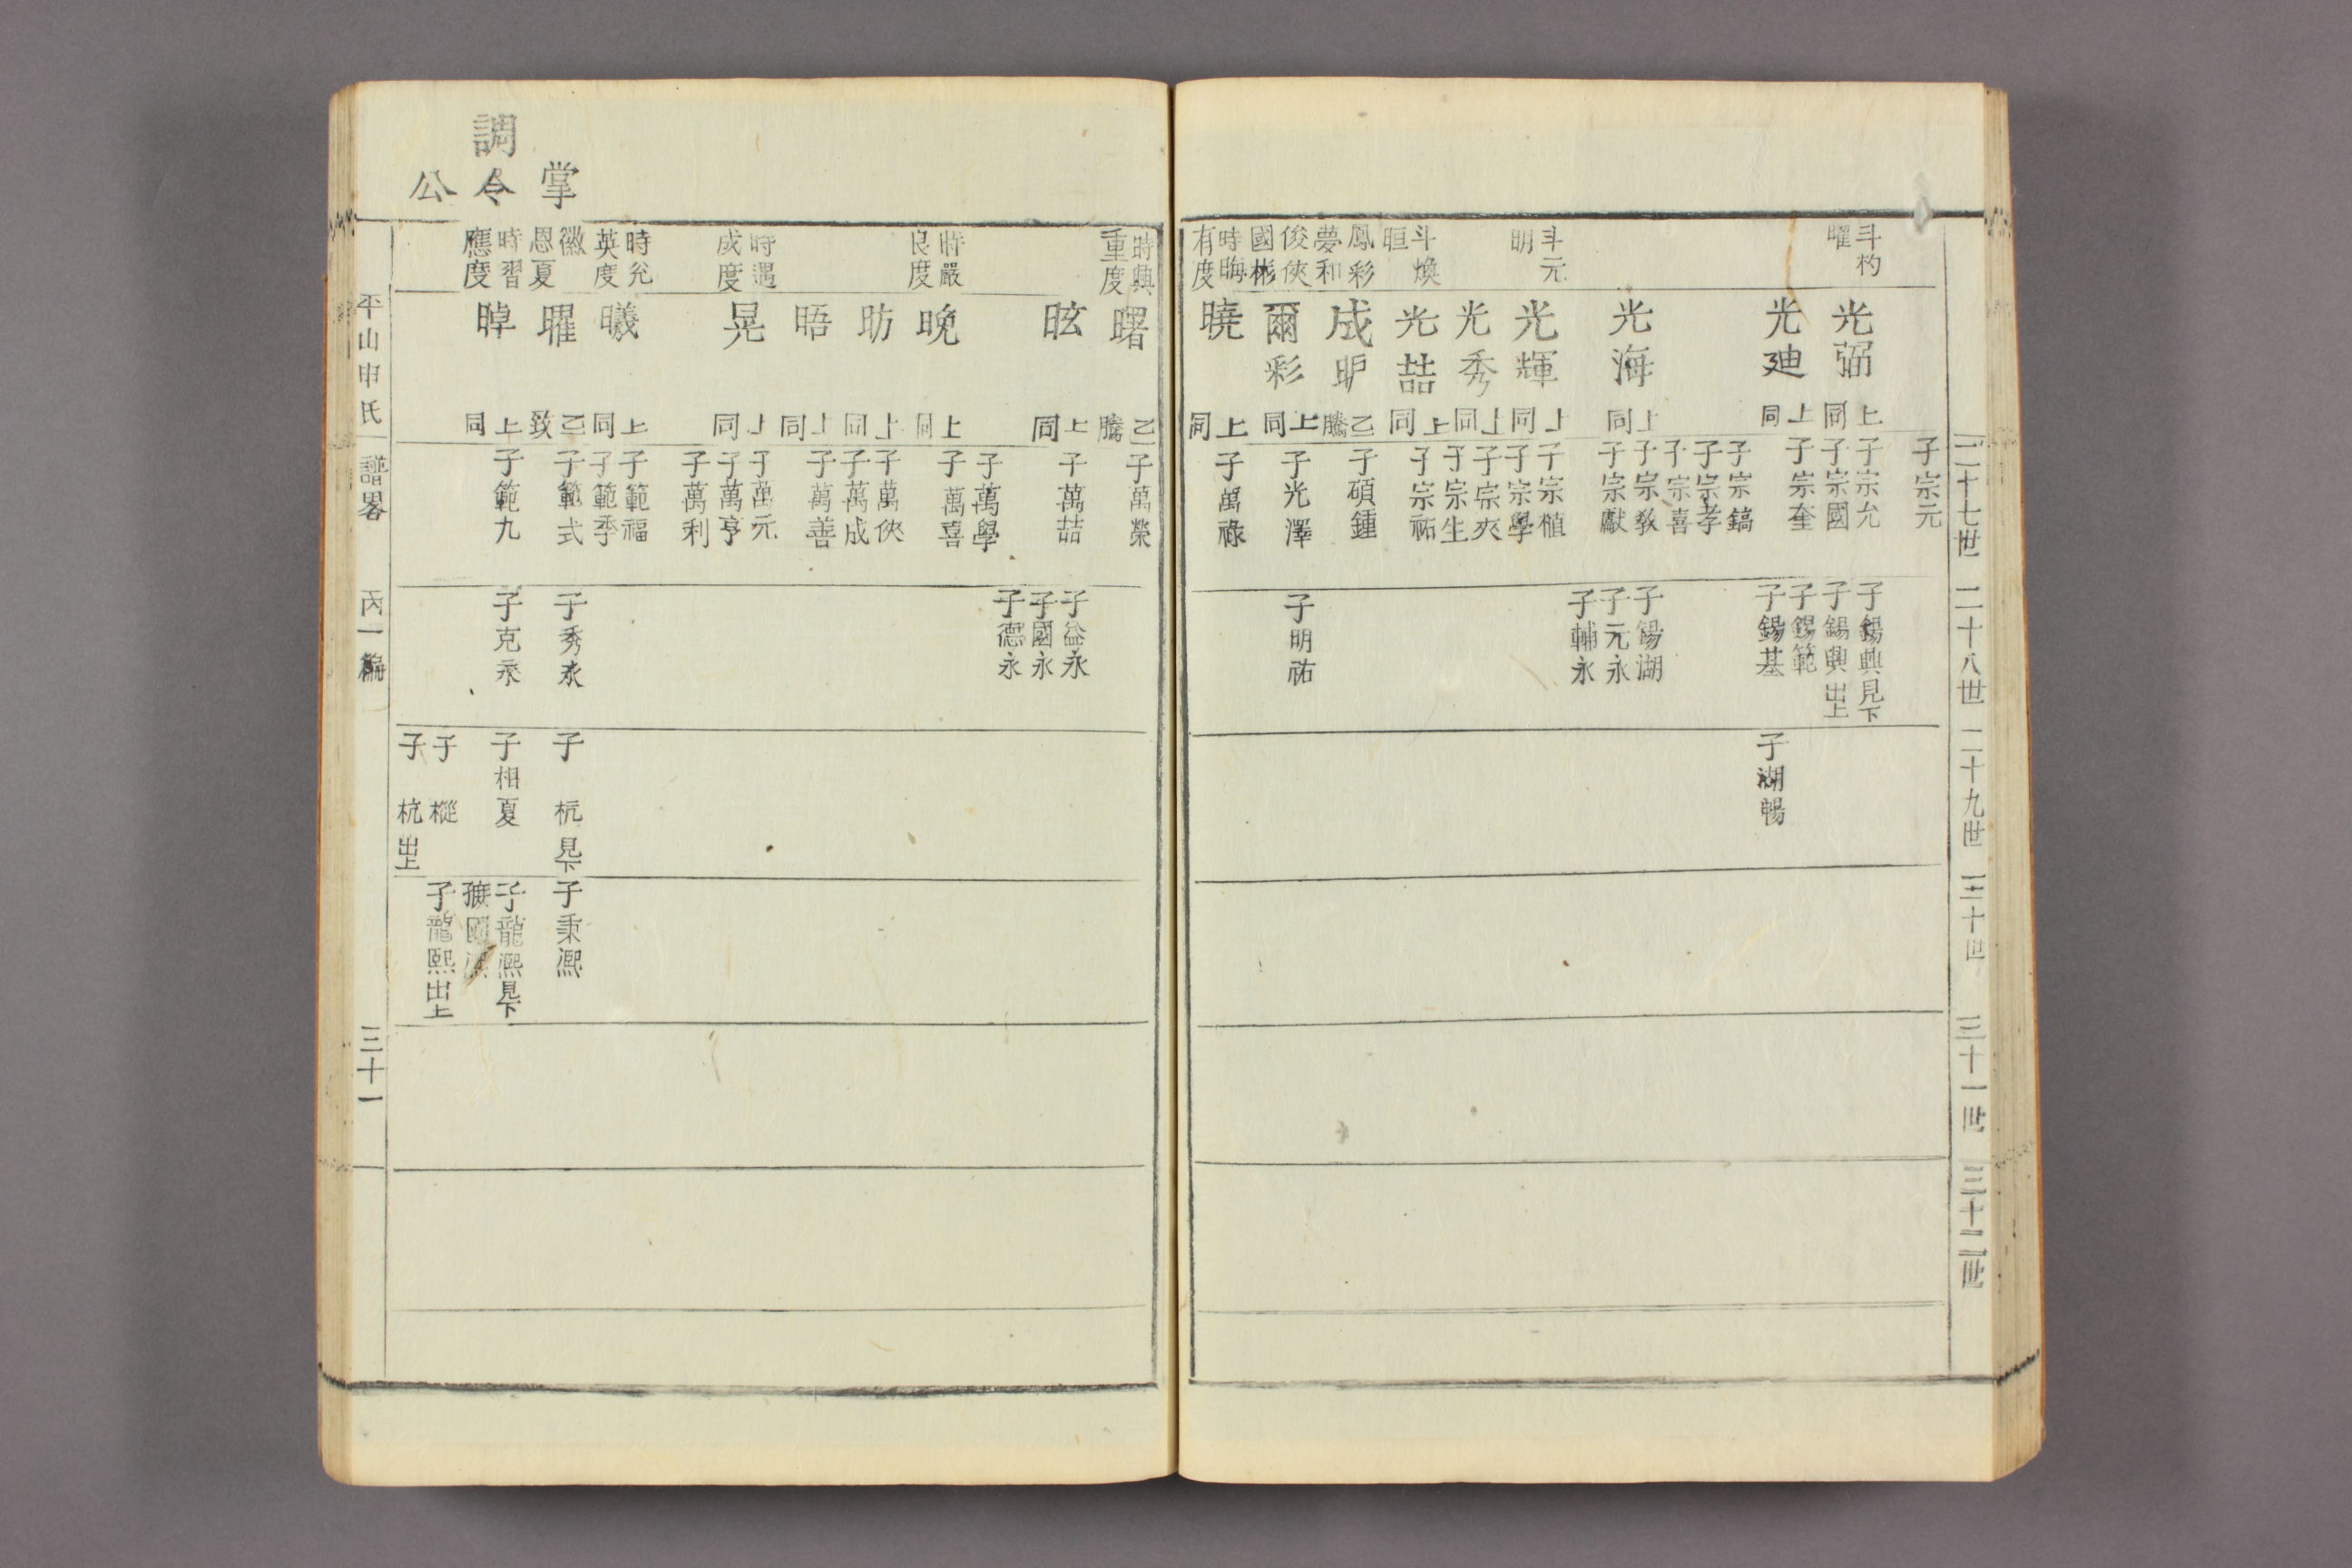 二十七世
二十八世
二十九世
三十世
三十一世
三十二世
子宗元
斗杓
曜
光弼
上同
子宗允
子錫興見下
子宗國
子錫興出上
光廸
上同
子宗奎
子錫範
子錫基
子湖暢
光海
上同
子宗鎬
子宗孝
子宗喜
子宗教
子錫湖
子元永
子輔永
子宗獻
斗元
明
光輝
上同
子宗植
子宗學
光秀
上同
子宗夾
子宗生
斗煥
晅
光喆
上同
子宗祐
鳳彩
夢和
成昈
乙騰
子碩鍾
俊俠
國彬
爾彩
上同
子光澤
子明祐
時晦
有度
曉
上同
子萬祿
時興
重度
曙
乙騰
子萬榮
昡
上同
子萬喆
子益永
子國永
子德永
時嚴
良度
晚
上同
子萬學
子萬喜
昉
上同
子萬俠
子萬成
晤
上同
子萬善
時遇
成度
晃
上同
子萬元
子萬亨
子萬利
時允
英度
曦
上同
子範福
子範季
徽
恩夏
曜
乙致
子範式
子秀永
子杭見下
子秉熈
時習
應度
晫
上同
子範九
子克永
子相夏
子龍熈見下
子樅
子龍熙出上
子杭出上
掌令公
調
平山申氏
譜畧
丙一編
三十一